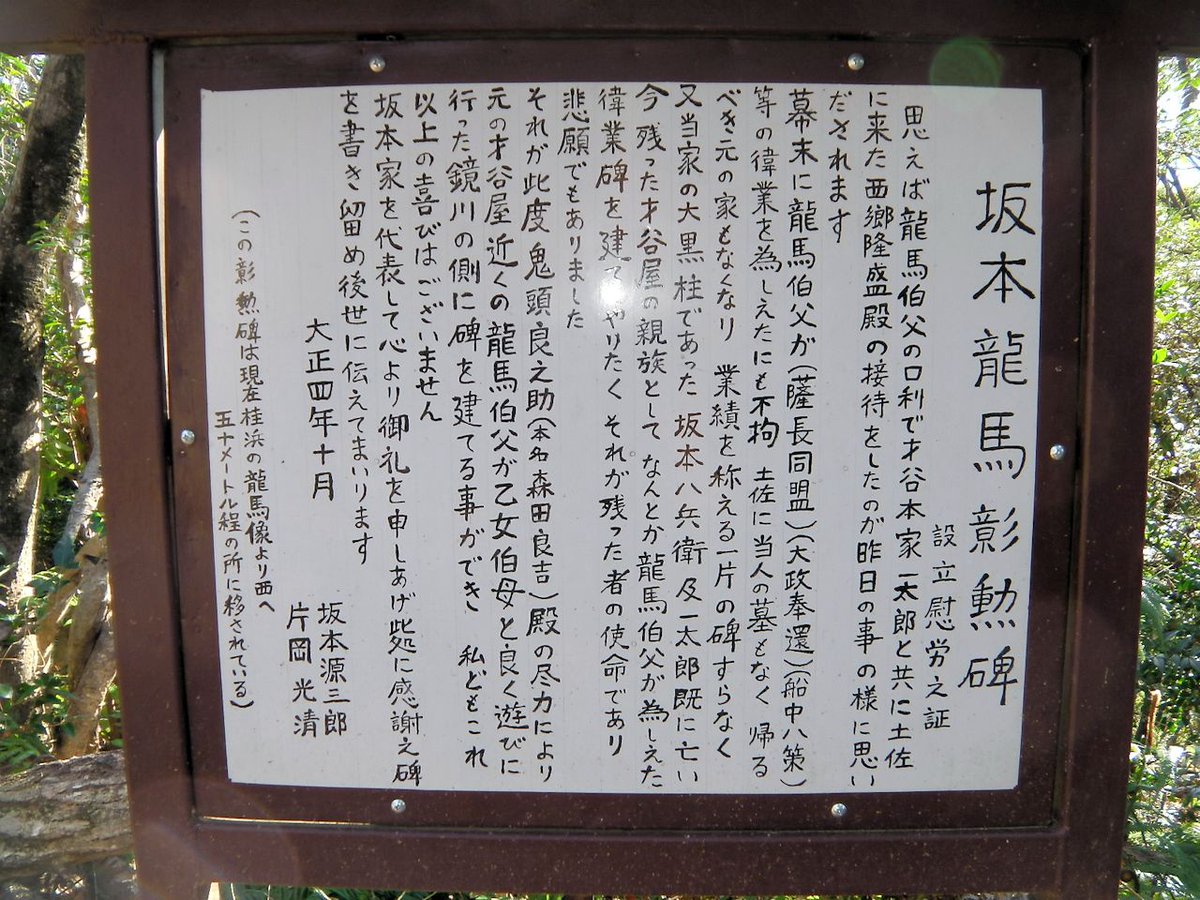 坂本龍馬彰勲碑
設立慰労之証
思えば龍馬伯父の口利で才谷本家一太郎と共に土佐
に来た西郷隆盛殿の接待をしたのが昨日の事の様に思い
だされます
幕末に龍馬伯父が(薩長同盟)(大政奉還)(船中八策)
等の偉業を為しえたにも不拘 土佐に当人の墓もなく 帰る
べき元の家もなくなり 業績を称える一片の碑すらなく
又当家の大黒柱であった 坂本八兵衛及一太郎既に亡い
今 残った才谷屋の親族として なんとか龍馬伯父が為しえた
偉業碑を建てやりたく それが残った者の使命であり
悲願でもありました
それが此度鬼頭良之助(本名森田良吉)殿の尽力により
元の才谷屋近くの龍馬伯父が乙女伯母と良く遊びに
行った鏡川の側に碑を建てる事ができ 私どもこれ
以上の喜びはございません
坂本家を代表して心より御礼を申しあげ此処に感謝之碑
を書き留め後世に伝えてまいります
大正四年十月
坂本源三郎
片岡光清
(この彰勲碑は現在桂浜の龍馬像より西へ
五十メートル程の所に移されている)